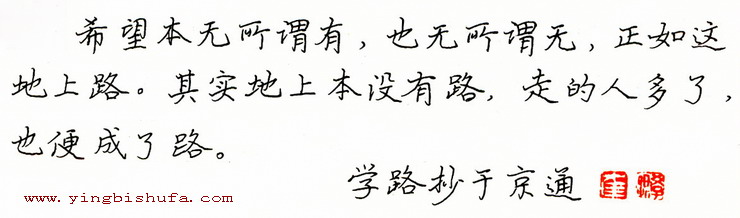 希望本无所谓有，也无所谓无，正如这
地上路。其实地上本没有路，走的人多了，
也便成了路。
学路抄于京通
www.yingbishufa.com